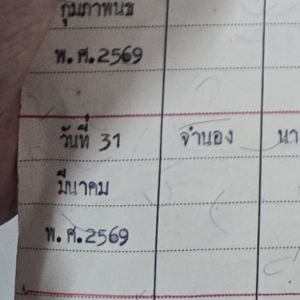 กุมภาพันธ์
พ.ศ.2569
วันที่ 31 จำนอง นา
มีนาคม
พ.ศ.2569